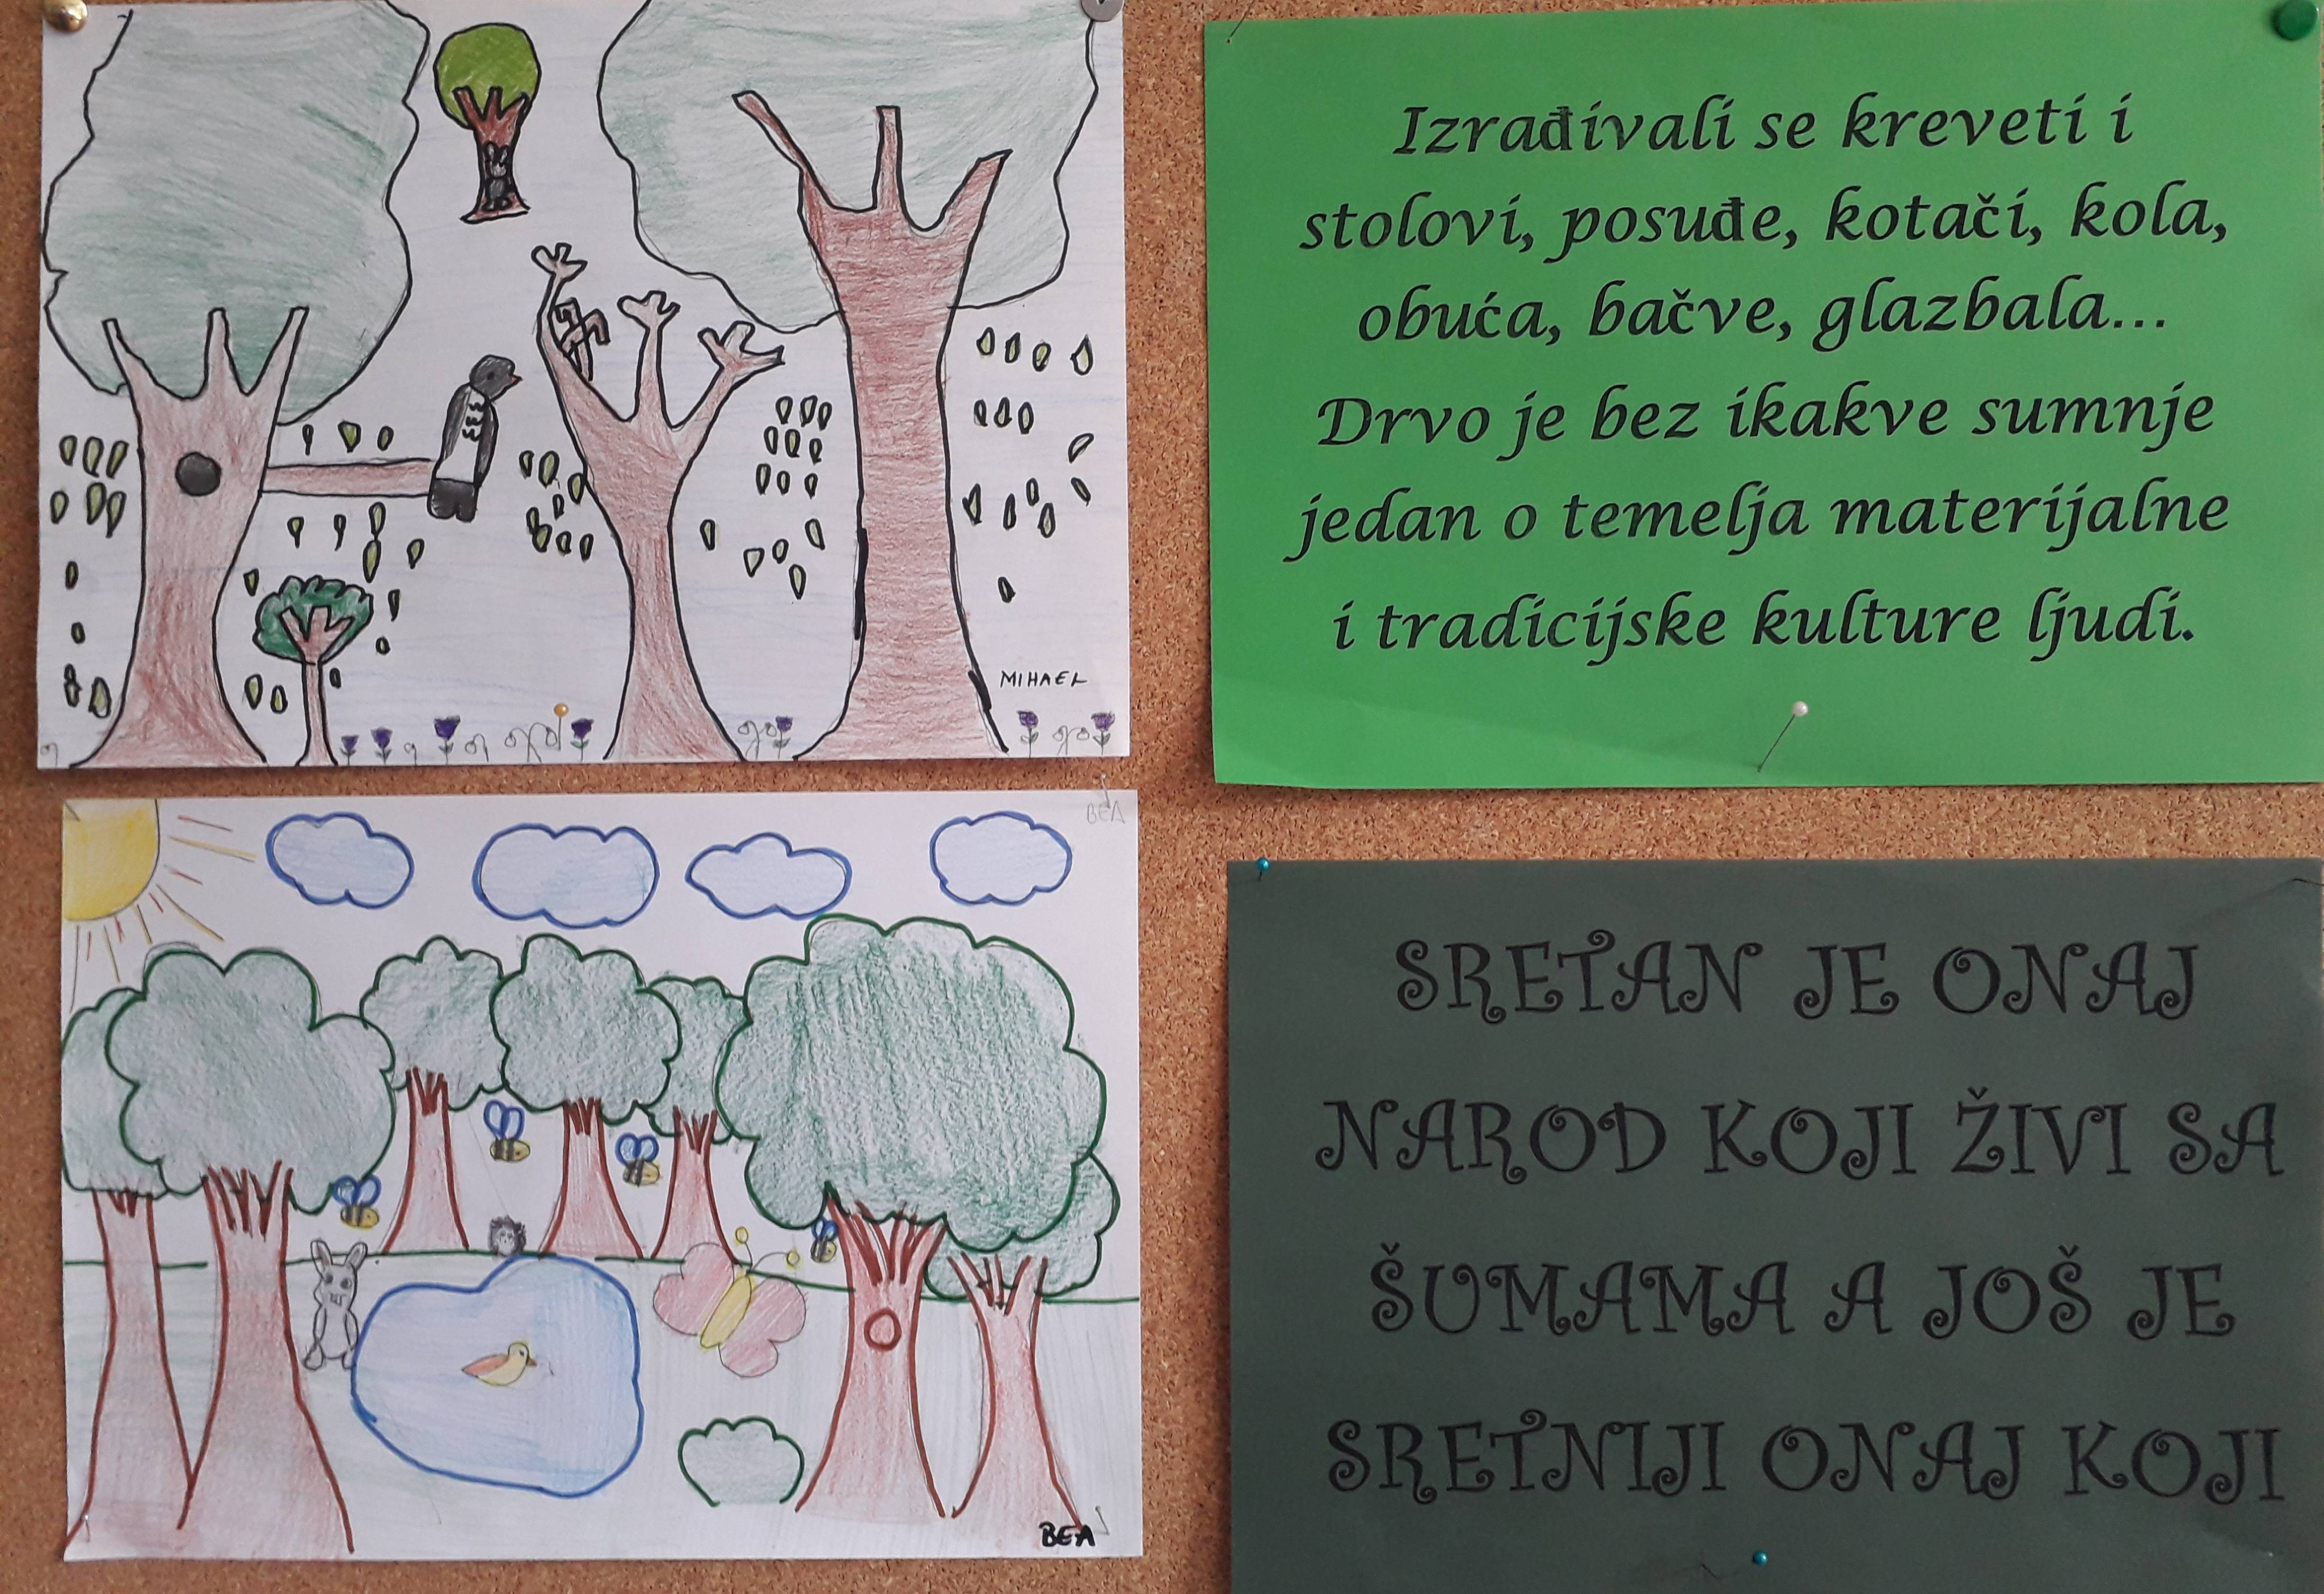 MIHAEL
Izrađivali se kreveti i
stolovi, posuđe, kotači, kola,
obuća, bačve, glazbala...
Drvo je bez ikakve sumnje
jedan o temelja materijalne
i tradicijske kulture ljudi.
BEA
BEA
SRETAN JE ONAJ
NAROD KOJI ŽIVI SA
ŠUMAMA A JOŠ JE
SRETNIJI ONAJ KOJI